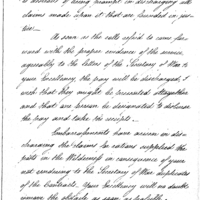 a measure of being prompt in discharging all
claims made upon it that are founded in jus-
tice.
As soon as the rolls referred to come for-
ward with the proper evidence of the service,
agreeably to the letter of the Secretary of War to
your Excellency, the pay will be discharged. I
wish they might be presented altogether
and that one person be nominated to disburse
the pay and take the receipts.
Embarrassments have arisen on dis-
charging the claims for rations supplied the
posts in the in consequence of your
not rendering to the Secretary of War duplicates
of the Contracts. Your Excellency will no doubt
remove the obstacle as soon as